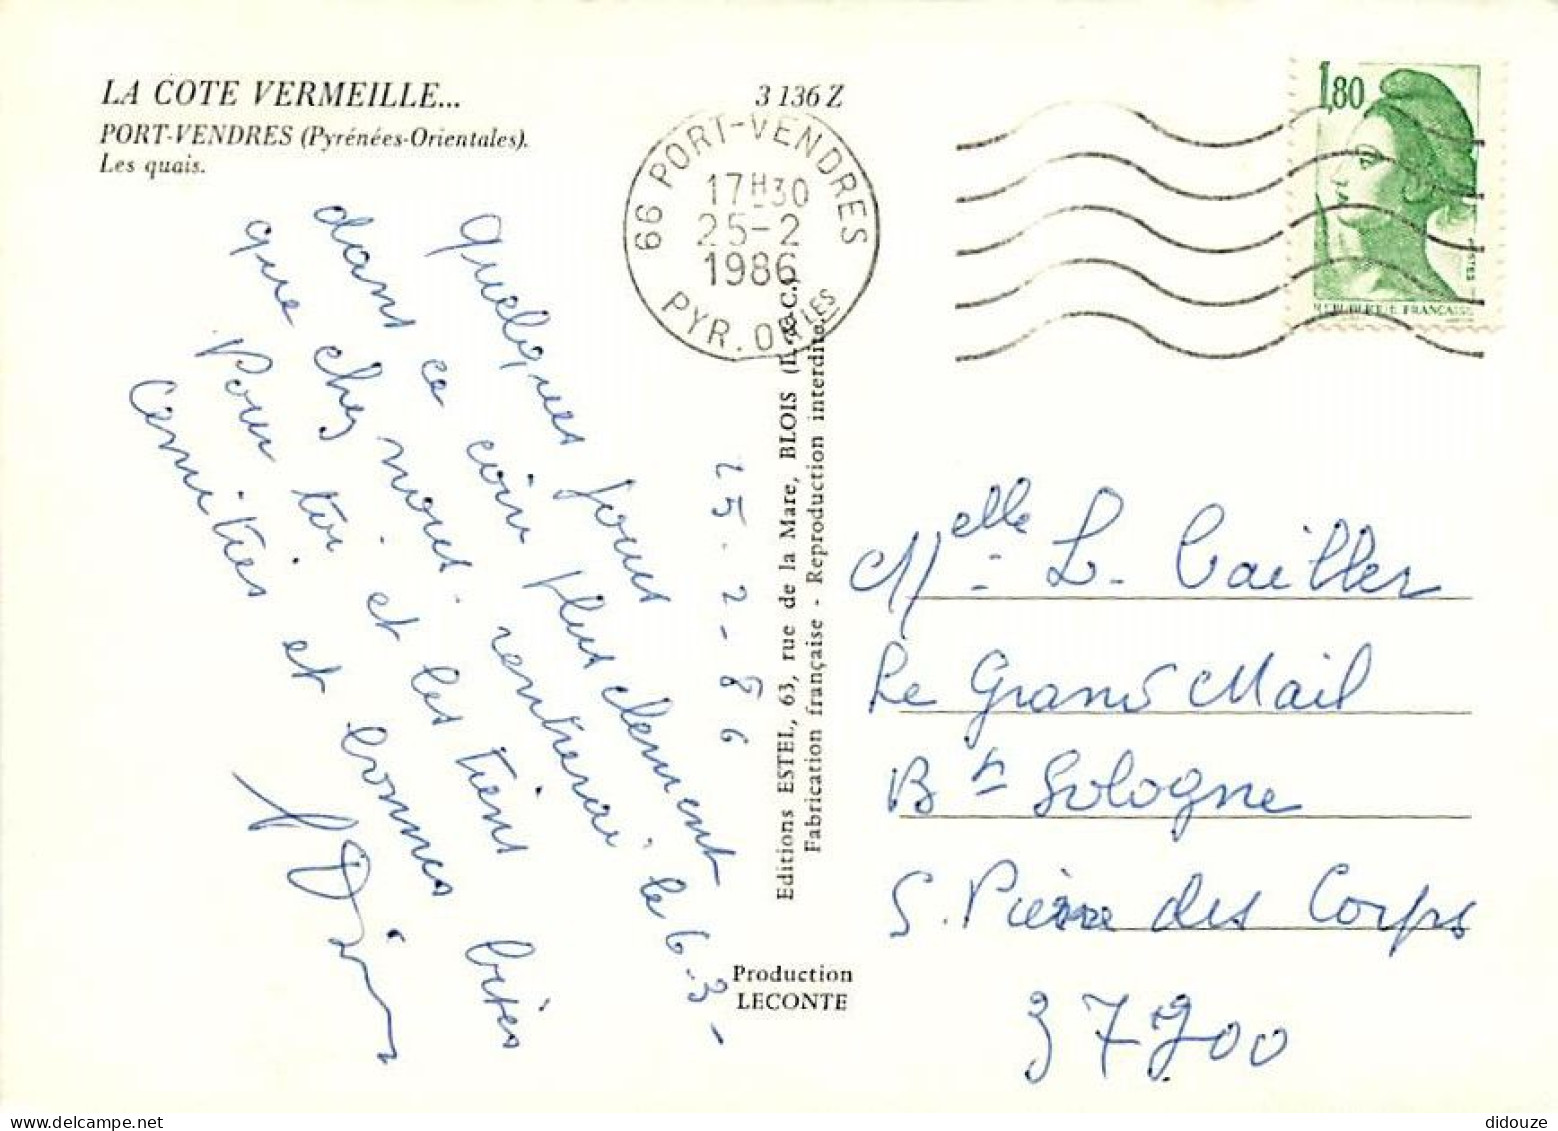 LA COTE VERMEILLE...
PORT-VENDRES (Pyrénées-Orientales).
Les quais.
3 136 Z
66 PORT-VENDRES
17H30
25-2
1986
PYR. ORLES
1,80
POSTES
REPUBLIQUE FRANÇAISE
25.2-86
Quelques jours
dans ce coin plus clement
que chez nous. rentrerai le 6-3-
Pour toi et les tiens bises
amitiés et bonnes
Editions ESTEL, 63, rue de la Mare, BLOIS (L.&C.)
Fabrication française - Reproduction interdite.
Production
LECONTE
Melle L. Cailler
Le Grand Mail
Bt Sologne
S. Pierre des Corps
37700
didouze